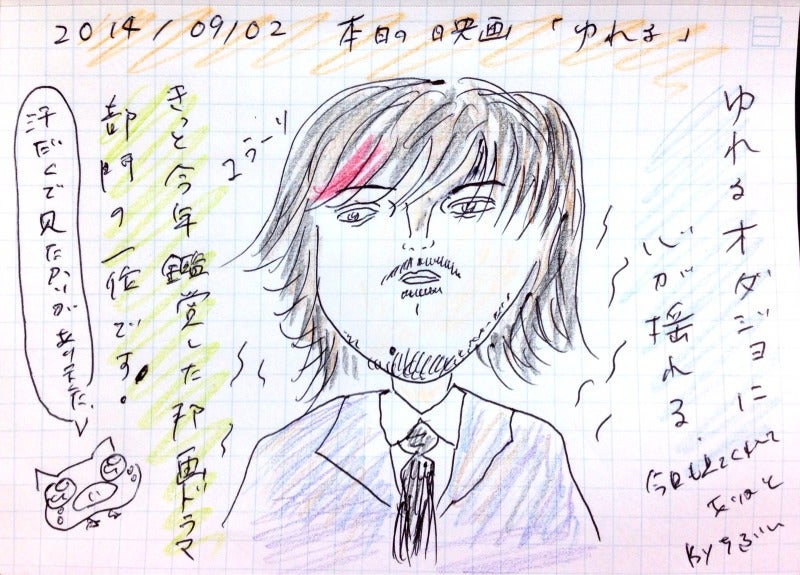 2014/09/02 本日の日映画「ゆれる」
ゆれるオダジョに
心が揺れる
今日も見てくれて
ありがと
By
ユラーリ
きっと今年鑑賞した邦画ドラマ
部門の一位です。
汗だくで見たかいがありました